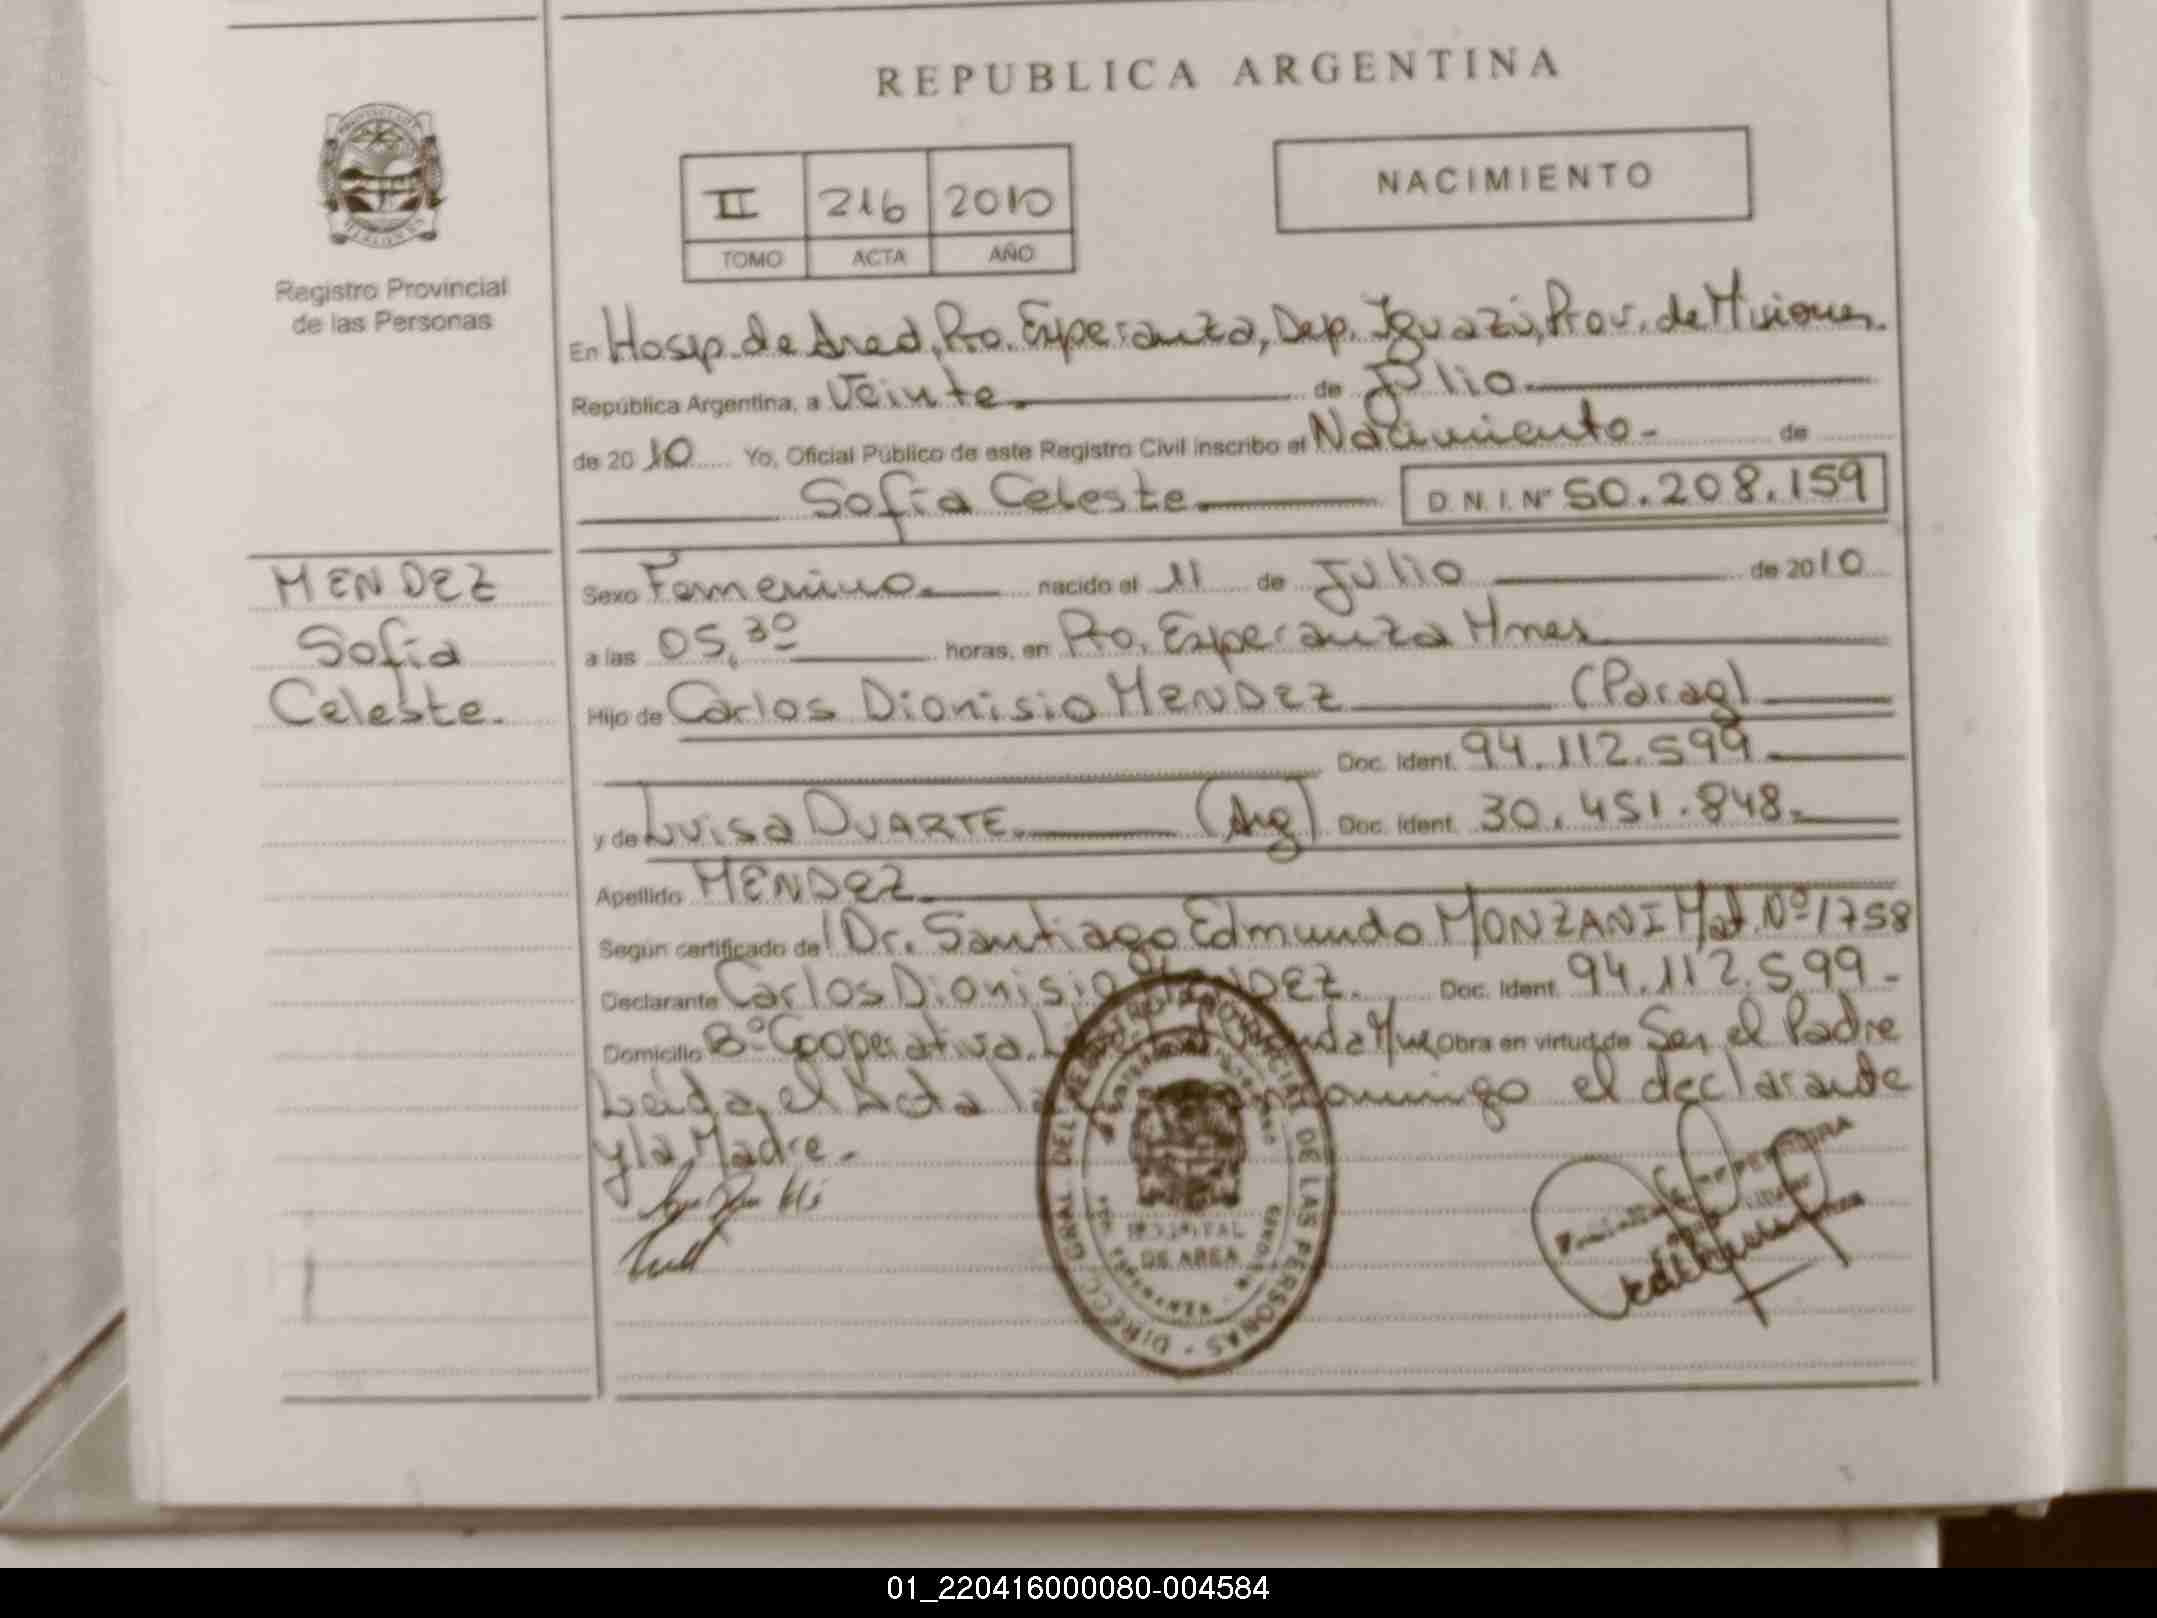 REPUBLICA ARGENTINA
II 216 2010
TOMO ACTA AÑO
NACIMIENTO
Registro Provincial
de las Personas
En Hosp. de Area, Pto. Esperanza, Dep. Iguazú, Prov. de Misiones.
República Argentina, a Veinte. de Julio.
de 2010 Yo, Oficial Público de este Registro Civil inscribo el Nacimiento - de
Sofía Celeste
D.N.I. Nº 50.208.159
MENDEZ
Sofía
Celeste.
Sexo Femenino. nacido el 11 de Julio de 2010
a las 05,30 horas, en Pto. Esperanza Mnes
Hijo de Carlos Dionisio MENDEZ (Parag)
Doc. Ident. 94.112.599
y de Luisa DUARTE. (Arg) Doc. Ident. 30.451.848.
Apellido MENDEZ
Según certificado del Dr. Santiago Edmundo MONZANI Mat. Nº 1758
Declarante Carlos Dionisio MENDEZ. Doc. Ident. 94.112.599 -
Domicilio Bº Cooperativa. Obra en virtud de Ser el Padre
Leída el Acta la el declarante
y la Madre. -
DIRECC. GRAL. DEL REGISTRO PROVINCIAL DE LAS PERSONAS
HOSPITAL
DE AREA
01_220416000080-004584